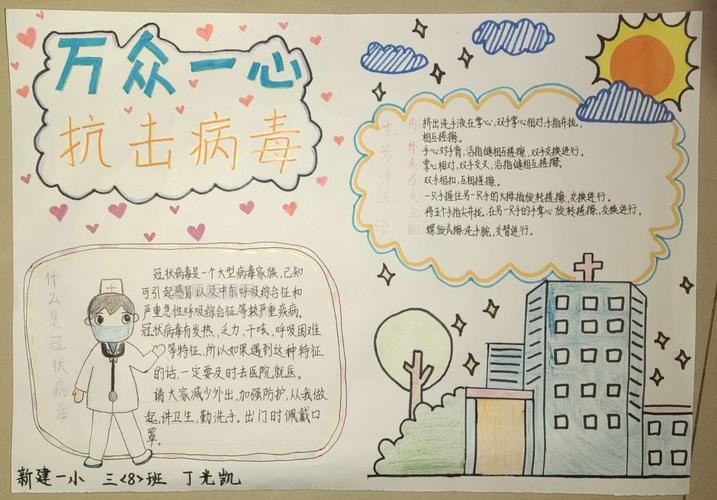 万众一心
抗击病毒
什么是冠状病毒
冠状病毒是一个大型病毒家族,已知
可引起感冒以及中东呼吸综合征和
严重急性呼吸综合征等较严重疾病。
冠状病毒有发热、乏力、干咳、呼吸困难
等特征,所以如果遇到这种特征
的话,一定要及时去医院就医。
请大家减少外出,加强防护,从我做
起,讲卫生,勤洗手。出门时佩戴口
罩。
七步洗手法
内:挤出洗手液在掌心,双手掌心相对,手指并拢,
相互搓擦。
外:手心对手背,沿指缝相互搓擦,双手交换进行。
夹:掌心相对,双手交叉,沿指缝相互搓擦。
弓:双手相扣,互相搓擦。
大:一只手握住另一只手的大拇指旋转搓擦,交换进行。
立:将五个手指尖并拢,在另一只手的手掌心旋转搓擦,交换进行。
腕:螺旋式擦洗手腕,交替进行。
新建一小 三<8>班 丁光凯